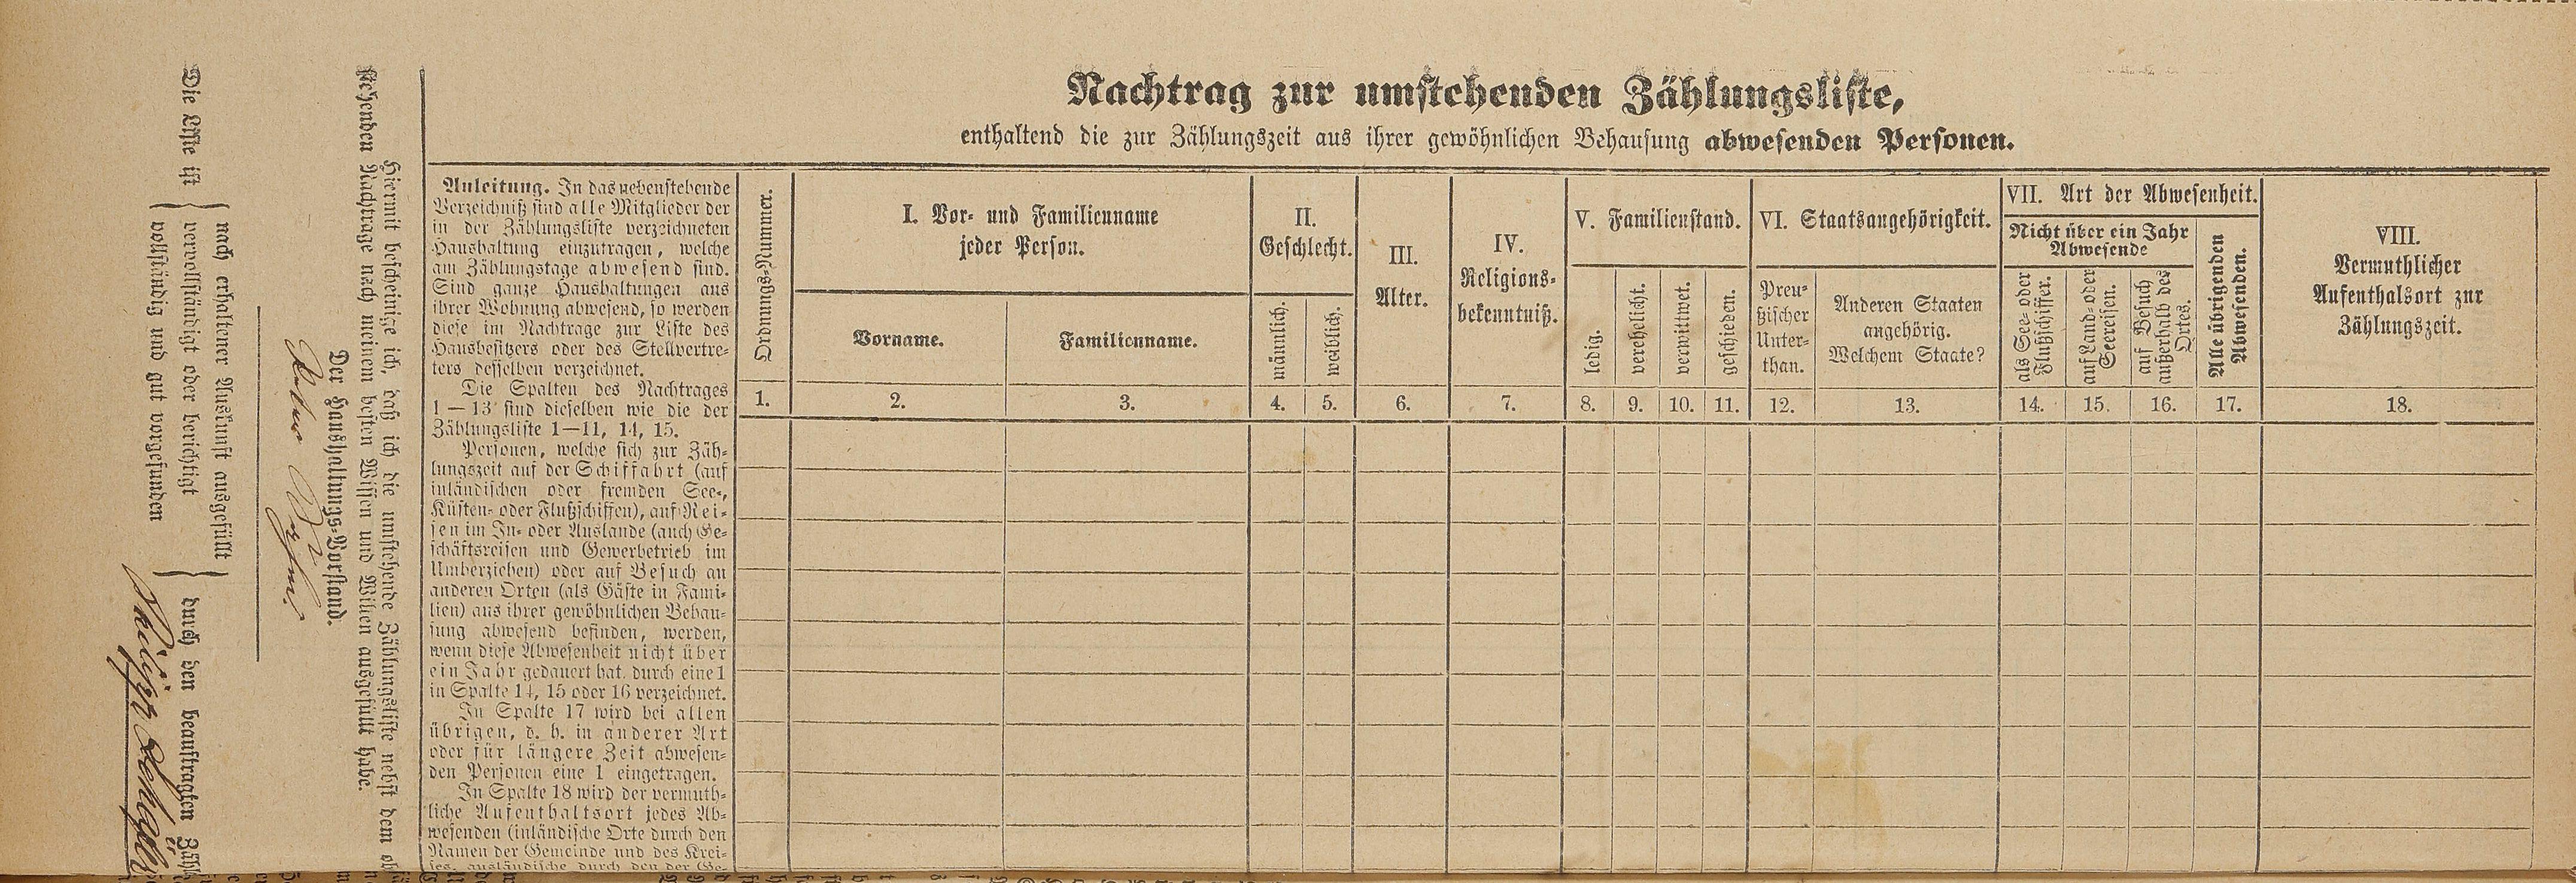 Nachtrag zur umstehenden Zählungsliste,
enthaltend die zur Zählungszeit aus ihrer gewöhnlichen Behausung abwesenden Personen.
Anleitung. In das nebenstehende
Verzeichniß sind alle Mitglieder der
in der Zählungsliste verzeichneten
Haushaltung einzutragen, welche
am Zählungstage abwesend sind.
Sind ganze Haushaltungen aus
ihrer Wohnung abwesend, so werden
diese im Nachtrage zur Liste des
Hausbesitzers oder des Stellvertre-
ters desselben verzeichnet.
Die Spalten des Nachtrages
1—13 sind dieselben wie die der
Zählungsliste 1—11, 14, 15.
Personen, welche sich zur Zäh-
lungszeit auf der Schiffahrt (auf
inländischen oder fremden See-,
Küsten- oder Flußschiffen), auf Rei-
sen im In- oder Auslande (auch Ge-
schäftsreisen und Gewerbetrieb im
Umherziehen) oder auf Besuch an
anderen Orten (als Gäste in Fami-
lien) aus ihrer gewöhnlichen Behau-
sung abwesend befinden, werden,
wenn diese Abwesenheit nicht über
ein Jahr gedauert hat, durch eine 1
in Spalte 14, 15 oder 16 verzeichnet.
In Spalte 17 wird bei allen
übrigen, d. h. in anderer Art
oder für längere Zeit abwesen-
den Personen eine 1 eingetragen.
In Spalte 18 wird der vermuth-
liche Aufenthaltsort jedes Ab-
wesenden (inländische Orte durch den
Namen der Gemeinde und des Krei-
ses, ausländische durch den der Ge-
Ordnungs-Nummer.
1.
I. Vor- und Familienname
jeder Person.
Vorname.
2.
Familienname.
3.
II.
Geschlecht.
männlich.
4.
weiblich.
5.
III.
Alter.
6.
IV.
Religions-
bekenntniß.
7.
V. Familienstand.
ledig.
8.
verehelicht.
9.
verwittwet.
10.
geschieden.
11.
VI. Staatsangehörigkeit.
Preu-
ßischer
Unter-
than.
12.
Anderen Staaten
angehörig.
Welchem Staate?
13.
VII. Art der Abwesenheit.
Nicht über ein Jahr
Abwesende
als See- oder
Flußschiffer.
14.
auf Land- oder
Seereisen.
15.
auf Besuch
außerhalb des
Ortes.
16.
Alle übrigenden
Abwesenden.
17.
VIII.
Vermuthlicher
Aufenthalsort zur
Zählungszeit.
18.
Hiermit bescheinige ich, daß ich die umstehende Zählungsliste nebst dem ob
stehenden Nachtrage nach meinem besten Wissen und Willen ausgefüllt habe.
Der Haushaltungs-Vorstand.
Die Liste ist
nach erhaltener Auskunft ausgefüllt
vervollständigt oder berichtigt
vollständig und gut vorgefunden
durch den beauftragten Zähl
Philipp